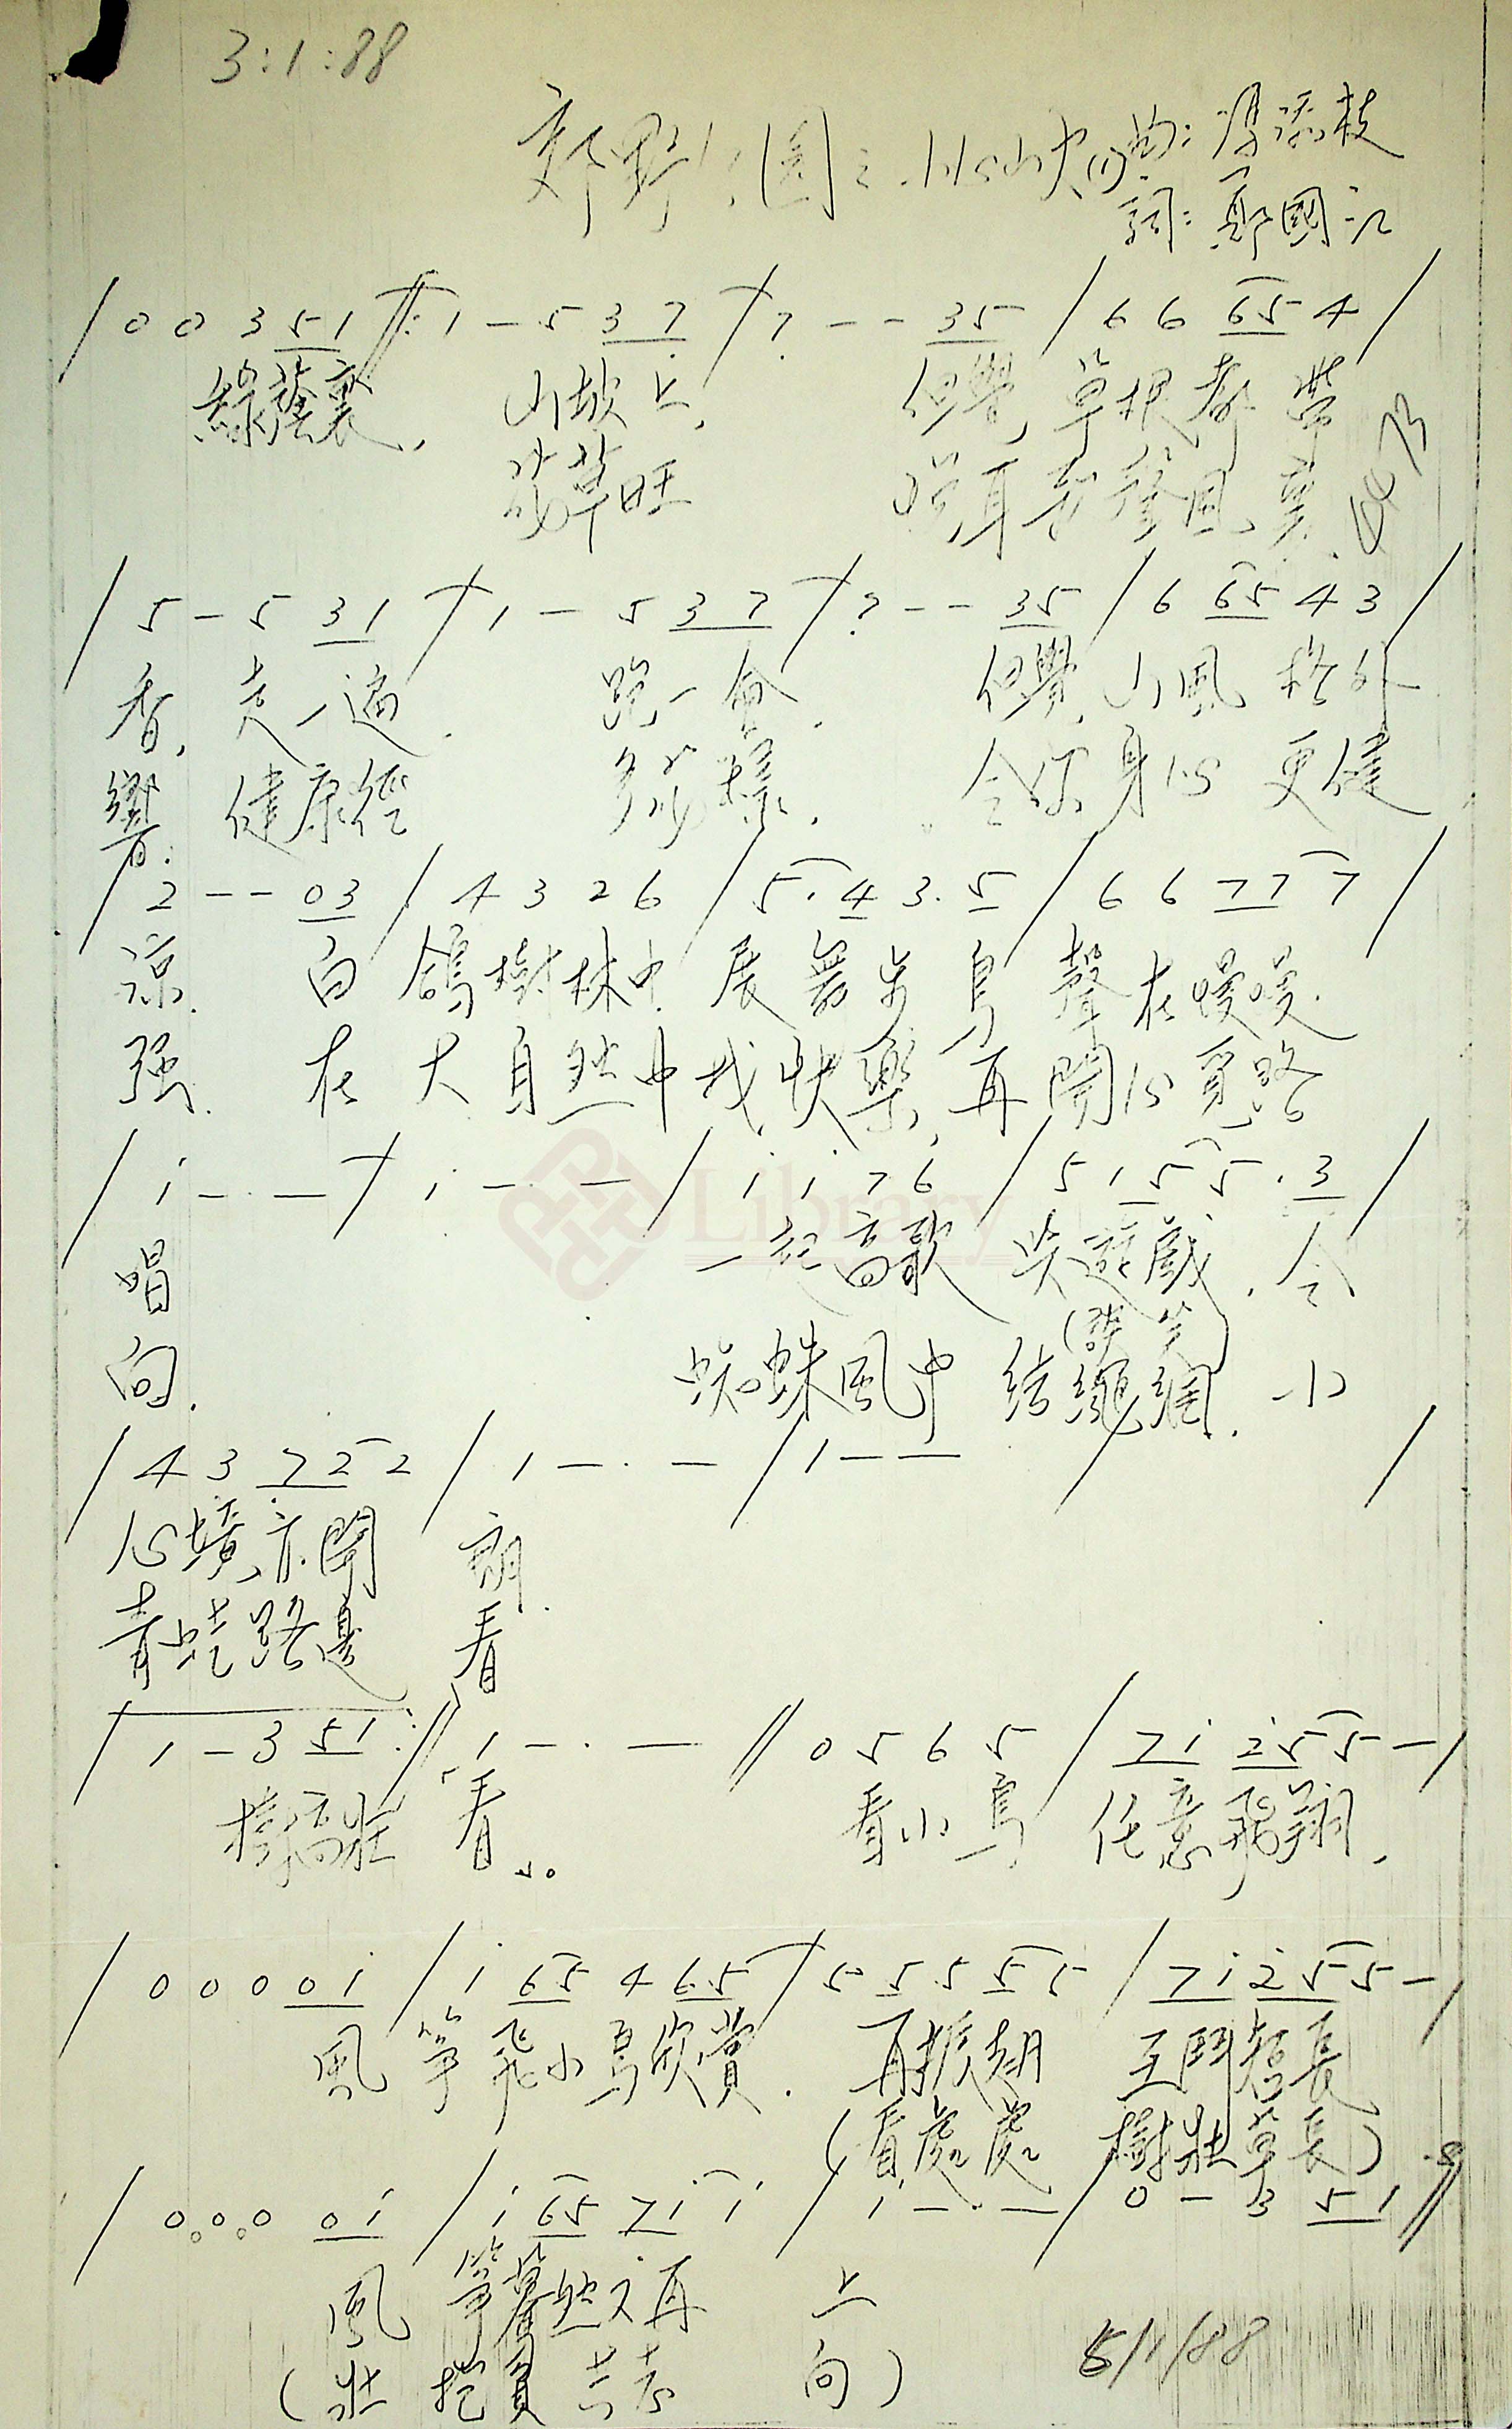 3:1:88
郊野公園之 曲:馮添枝
詞:鄭國江
/ 0 0 3 5 1 //: 1 — 5 3 7 / 7 — — 3 5 / 6 6 6 5 4 /
綠蔭裏, 山坡上, 但覺草根都帶
花草旺 嘆耳聲風裏
/ 5 — 5 3 1 / 1 — 5 3 7 / 7 — — 3 5 / 6 6 5 4 3 /
香, 走一遍. 跑一會. 但覺山風格外
響. 健康徑 多模樣. 令你身心更健
/ 2 — — 0 3 / 4 3 2 6 / 5 . 4 3 . 5 / 6 6 7 7 7 /
涼. 白鴿樹林中展舞步鳥聲在慢慢.
強. 在大自然中找快樂,再開心覓路
/ i — . — / i — . — / i i 7 6 / 5 1 5 5 . 3 /
Library
唱 一起高歌 笑遊戲. 令
(歡笑)
向. 蜘蛛風中 結繩網. 小
/ 4 3 7 2 2 / 1 — . — / 1 — — / /
心境亦開 朗.
青蛙路邊 看
/ 1 — 3 5 1 :// 1 — . — // 0 5 6 5 / 7 i 2 5 5 — /
樹高壯 看. 看小鳥 任意飛翔,
/ 0 0 0 0 i / i 6 5 4 6 5 / 5 5 5 5 5 / 7 i 2 5 5 — /
風箏飛小鳥欣賞. 再振翅 互鬥短長
(看處處 樹壯草長)
/ 0 0 0 0 i / i 6 5 7 i i / i — . — / 0 — 3 5 1 //
風箏驀然又再 上
(壯 抱負 志 向)
5/1/88